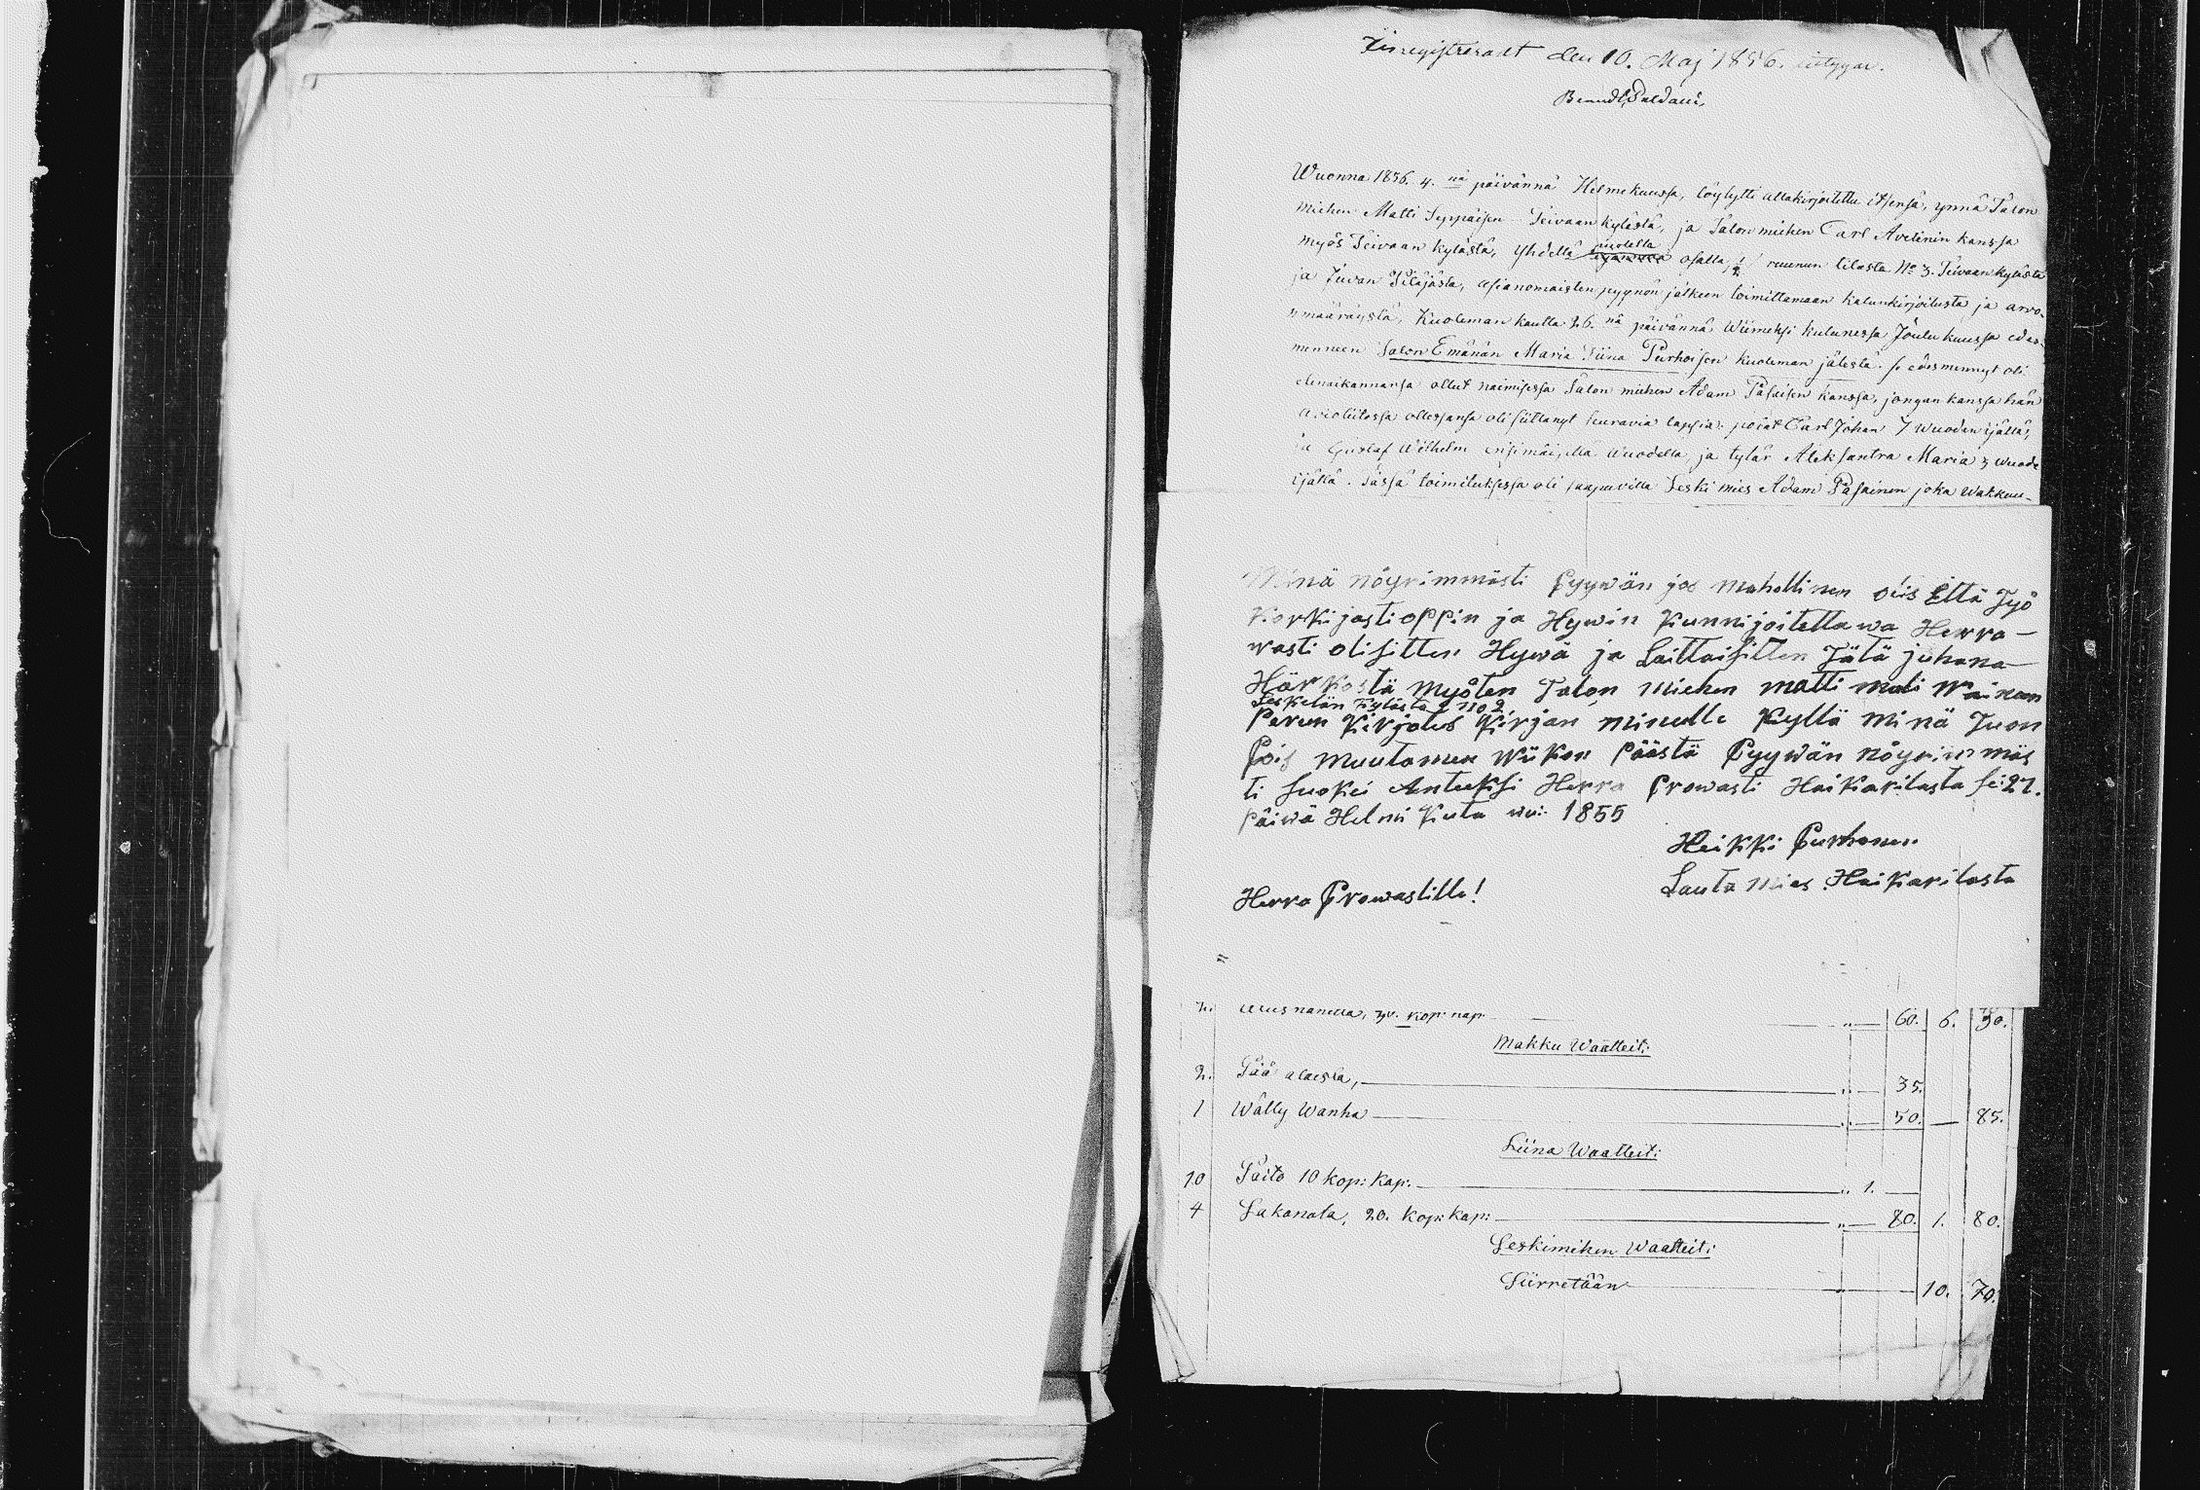 den 10. Maj 1856.
Wuonna 1856. 4. nä päivännä Helmekuussa, löylytti allakirjoitettu itsensä, ynnä Talon
miehen Matti Seppäisen Teivaan kylästä, ja Talon miehen Carl Avelinin kanssa
myös Teivaan kylästä, Yhdellä puolella osalla 1/2 ruunun tilasta No 3. Teivaan kylästä
ja Juvan Pitäjästä, asianomaisten pyynön jälkeen toimittamaan kalunkirjoitusta ja arvo-
nmääräystä, Kuoleman kautta 26. nä päivännä Wiimeksi kulunessa Joulu kuussa edes-
menneen Talon Emänän Maria Stiina Purhoisen kuoleman jälestä. se edesmennyt oli
elinaikannansa ollut naimisessa Talon miehen Adam Päsäisen kanssa, jongan kanssa hän
avioliitossa ollessansa oli siittanyt seuravia lapsia: poiat Carl Johan 7 wuoden ijällä,
ja Gustaf Wilhelm ensimäisellä wuodella, ja tylär Aleksantra Maria 3 wuode
ijällä. Tässä toimituksessa oli saapuvilla Leski mies Adam Päsäinen joka wakkuu-
Minä nöyrimmästi Pyywän jos mahollinen olis Että Työ
Korkijasti oppin ja Hywin Kunnijoitettawa Herra-
wasti olisitten Hywä ja Laittaisitten Tätä juhana
Härkostä myöten Talon miehen matti mati Wainean
Leskelän Kylästä no 2
Perun Kirjotus Kirjan minulle Kyllä minä Tuon
Pois muutamen Wiikon Päästä Pyywän nöyrimmäs
ti suokei Anteeksi Herra Prowasti Haikarilasta se 27.
Päiwä Helmi Kuta wu: 1855
Heikki Purhonen
Lauta mies Haikarilasta
Herra Prowastille!
2. kop: kap. 60. 6. 50.
Makku Waatteit:
2. Pää alaista, 35.
1 Wälly Wanha 50. 85.
Liina Waatteit:
10 Paito 10 kop: Kap. 1.
4 Lakanata, 20. Kop: Kap: 80. 1. 80.
Leskimihen Waatteit:
Siirretään 10. 70.